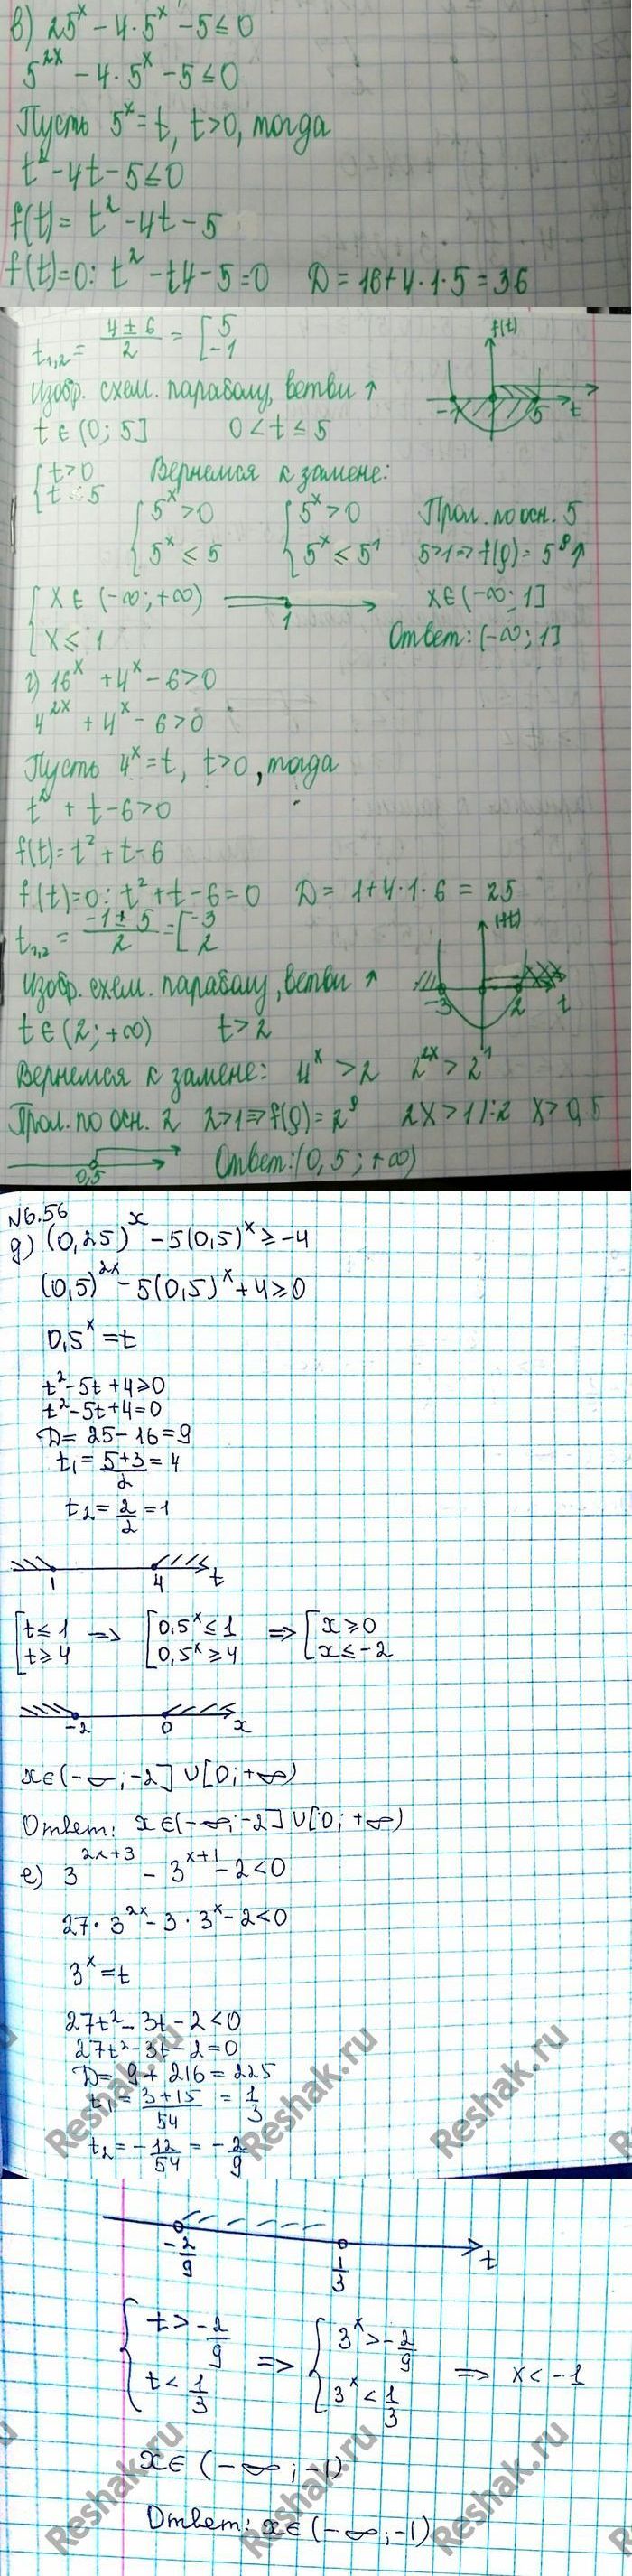 в) 25ˣ - 4·5ˣ - 5 ≤ 0
5²ˣ - 4·5ˣ - 5 ≤ 0
Пусть 5ˣ = t, t>0, тогда
t² - 4t - 5 ≤ 0
f(t) = t² - 4t - 5
f(t)=0: t² - t4 - 5 = 0 D = 16+4·1·5 = 36
t₁,₂ = (4 ± 6)/2 = [5 -1
f(t)
Изобр. схем. параболу, ветви ↑
-1 5 t
t ∈ (0; 5] 0 < t ≤ 5
{t>0 t ≤ 5 Вернемся к замене:
{5ˣ > 0 {5ˣ > 0 Прол. по осн. 5
5ˣ ≤ 5 5ˣ ≤ 5¹ 5>1 => f(g) = 5ᵍ↑
{x ∈ (-∞; +∞) 1 x ∈ (-∞; 1]
x ≤ 1 Ответ: (-∞; 1]
г) 16ˣ + 4ˣ - 6 > 0
4²ˣ + 4ˣ - 6 > 0
Пусть 4ˣ = t, t > 0, тогда
t² + t - 6 > 0
f(t) = t² + t - 6
f(t)=0: t² + t - 6 = 0 D = 1+4·1·6 = 25
t₁,₂ = (-1 ± 5)/2 = [-3 2
f(t)
Изобр. схем. параболу, ветви ↑
-3 2 t
t ∈ (2; +∞) t > 2
Вернемся к замене: 4ˣ > 2 2²ˣ > 2¹
Прол. по осн. 2 2>1 => f(g) = 2ᵍ 2x > 1 |:2 x > 0,5
0,5 Ответ: (0,5; +∞)
№6.56
д) (0,25)ˣ - 5(0,5)ˣ ≥ -4
(0,5)²ˣ - 5(0,5)ˣ + 4 ≥ 0
0,5ˣ = t
t² - 5t + 4 ≥ 0
t² - 5t + 4 = 0
D = 25 - 16 = 9
t₁ = (5+3)/2 = 4
t₂ = 2/2 = 1
1 4 t
[t ≤ 1 => [0,5ˣ ≤ 1 => [x ≥ 0
t ≥ 4 0,5ˣ ≥ 4 x ≤ -2
-2 0 x
x ∈ (-∞; -2] ∪ [0; +∞)
Ответ: x ∈ (-∞; -2] ∪ [0; +∞)
е) 3²ˣ⁺³ - 3ˣ⁺¹ - 2 < 0
27·3²ˣ - 3·3ˣ - 2 < 0
3ˣ = t
27t² - 3t - 2 < 0
27t² - 3t - 2 = 0
D = 9 + 216 = 225
t₁ = (3+15)/54 = 1/3
t₂ = -12/54 = -2/9
Reshak.ru Reshak.ru Reshak.ru
-2/9 1/3 t
{t > -2/9 => {3ˣ > -2/9 => x < -1
t < 1/3 3ˣ < 1/3
x ∈ (-∞; -1)
Ответ: x ∈ (-∞; -1)
Reshak.ru Reshak.ru Reshak.ru